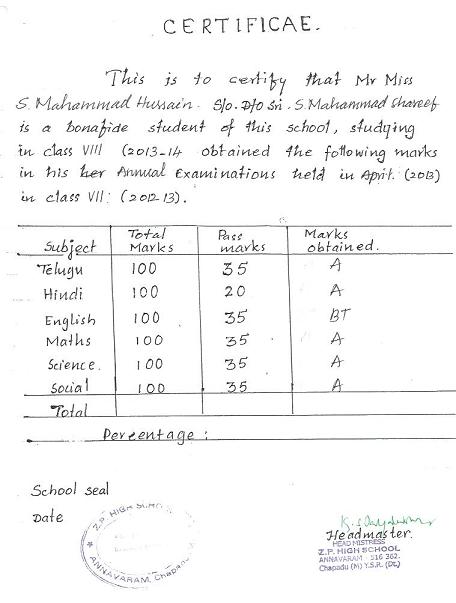 CERTIFICAE.
This is to certify that Mr Miss
S. Mahammad Hussain. S/o. D/o Sri. S. Mahammad Shareef
is a bonafide student of this school, studying
in class VIII (2013-14 obtained the following marks
in his her Annual Examinations held in April. (2013)
in class VII: (2012 13).
Subject Total Marks Pass marks Marks obtained.
Telugu 100 35 A
Hindi 100 20 A
English 100 35 BT
Maths 100 35 A
Science. 100 35 A
Social 100 35 A
Total
Percentage :
School seal
Date
Z.P. HIGH
ANNAVARAM,
Headmaster.
HEAD MISTRESS
Z.P. HIGH SCHOOL
ANNAVARAM - 516 362.
Chapadu (M) Y.S.R. (Dt.)